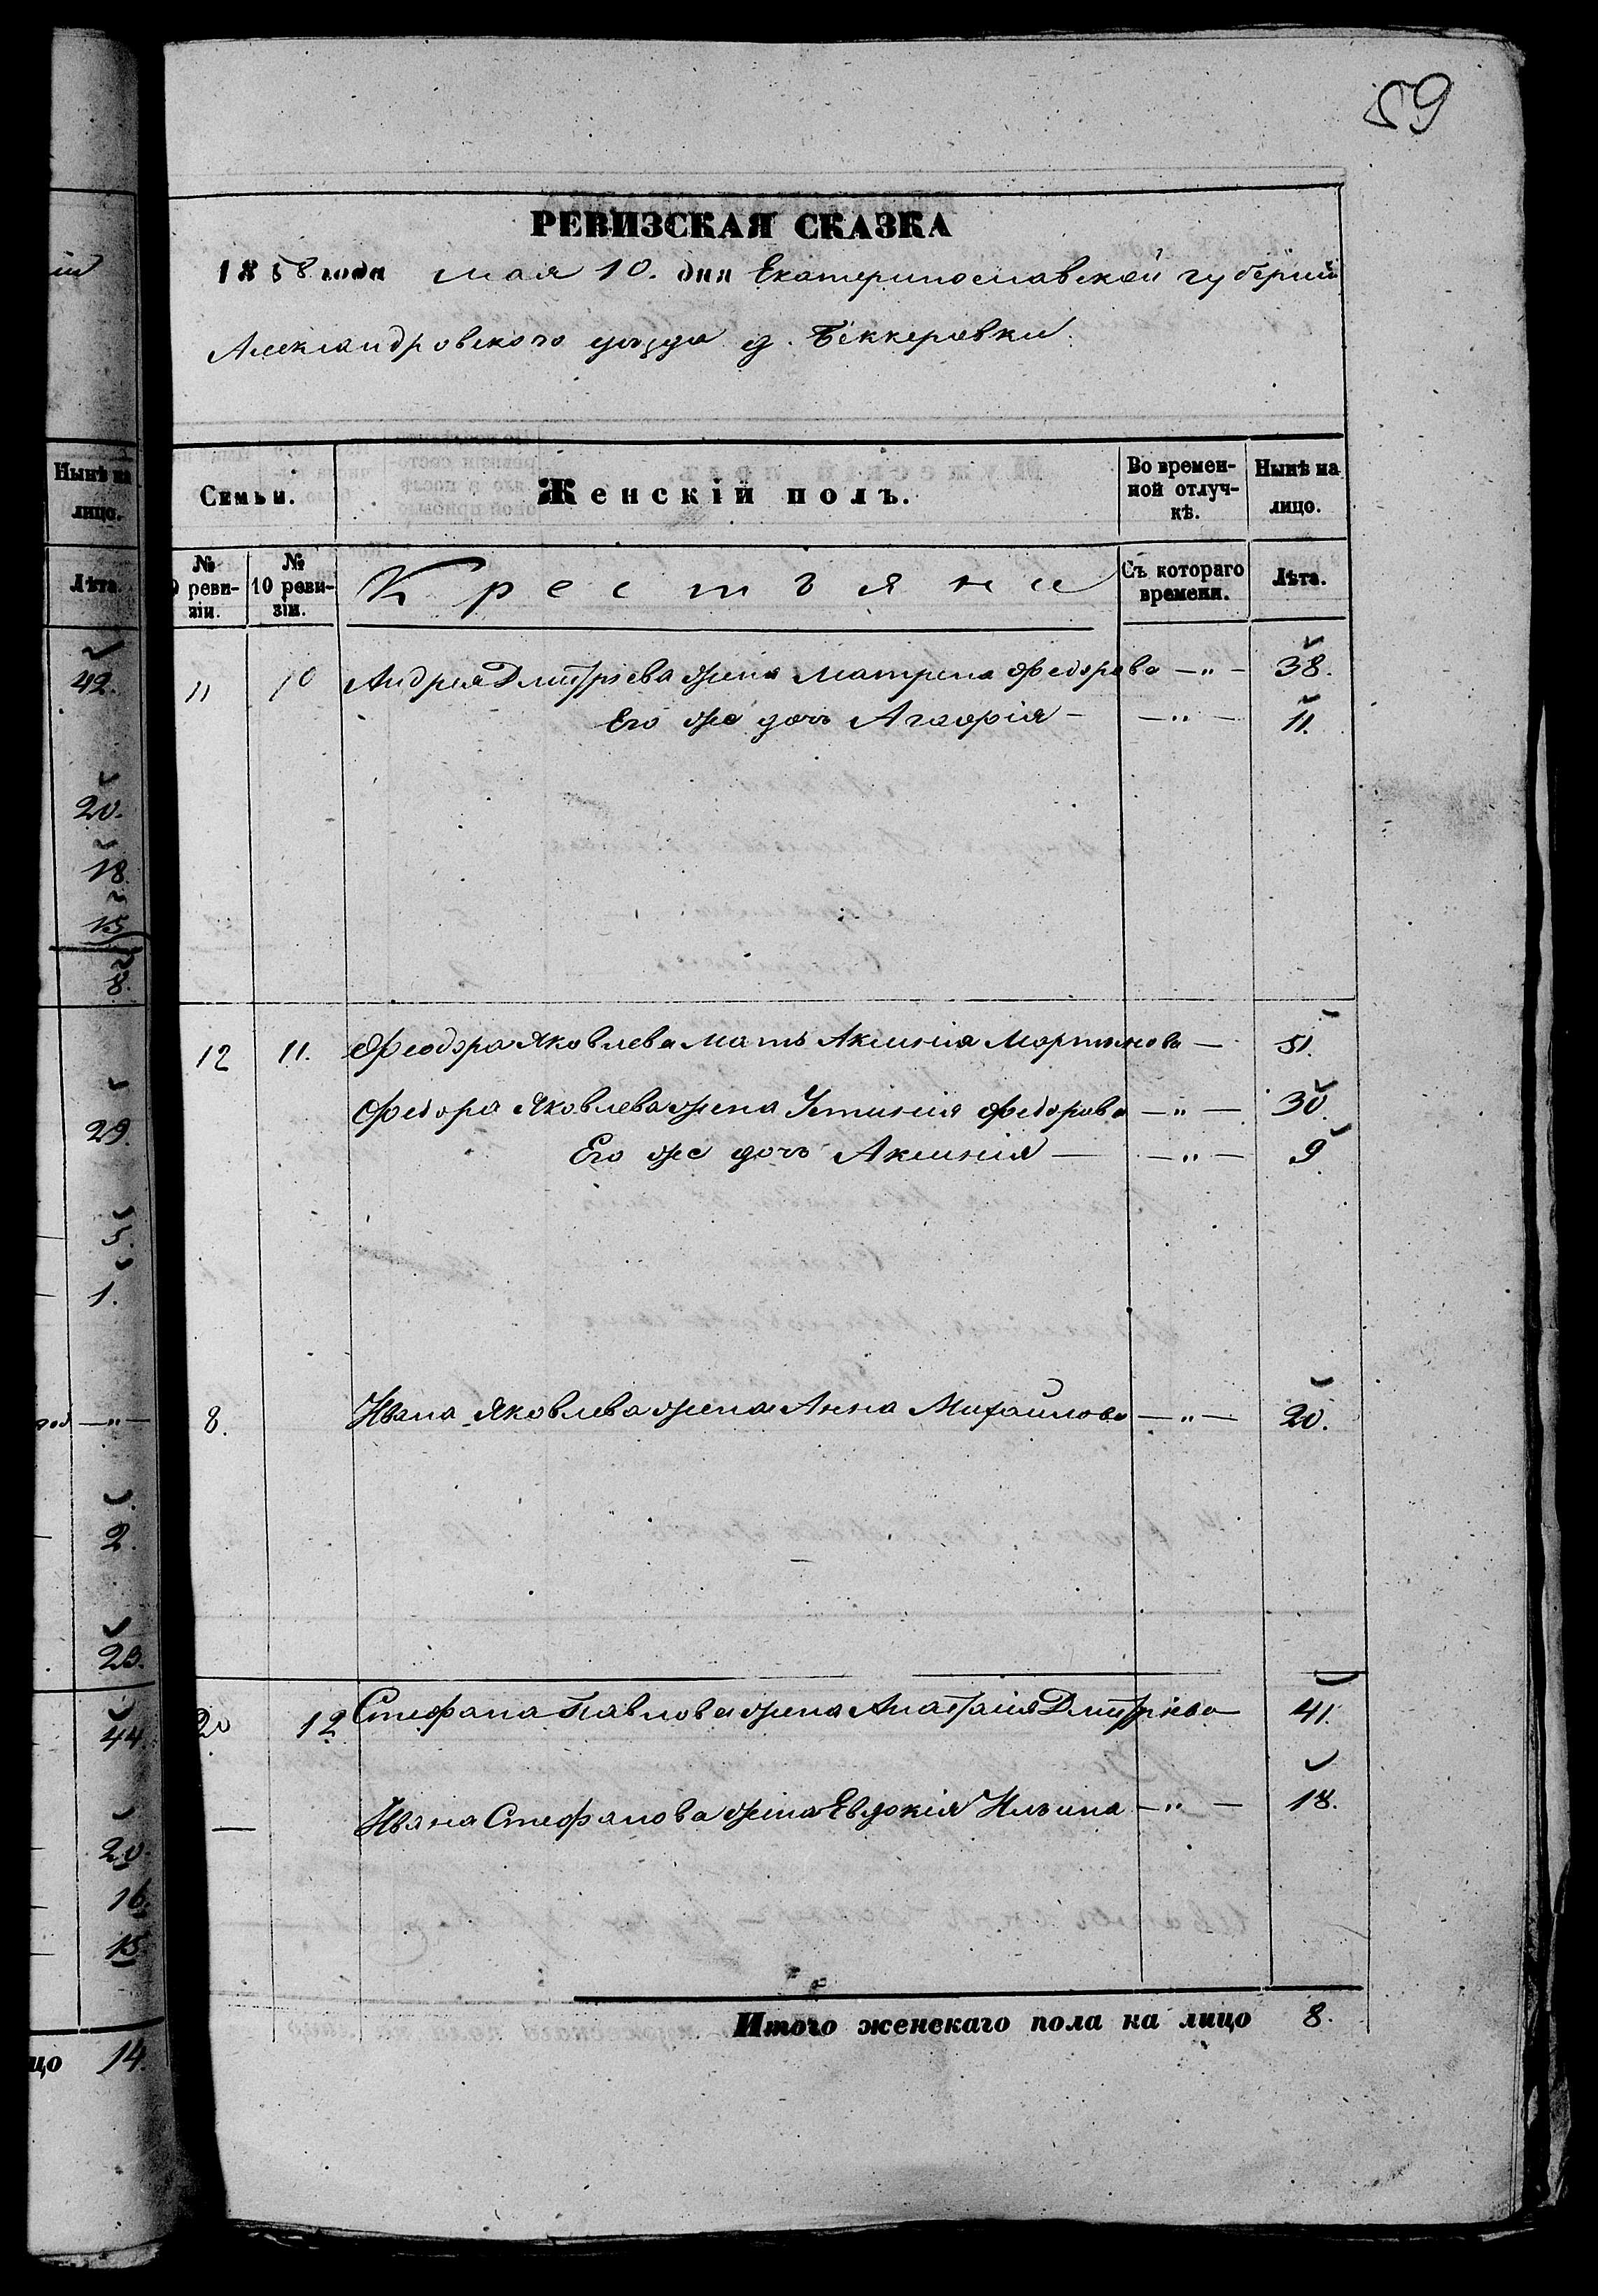 59
РЕВИЗСКАЯ СКАЗКА
1858 года мая 10. дня Екатеринославской губерніи
Александровского уѣзда д. Беккеровки.
Семьи. Женскій полъ. Во временной отлучкѣ. Нынѣ на лицо.
№ 9 ревизіи. № 10 ревизіи. Крестьяне Съ котораго времени. Лѣта.
11 10 Андрея Дмитріева жена Матрена Федорова —„— 38.
Его же дочь Агафія — —„— 11.
12 11. Феодора Яковлева мать Аксинія Мартынова — 51.
Федора Яковлева жена Устинія Федорова —„— 30.
Его же дочь Аксинія — —„— 9
8. Ивана Яковлева жена Анна Михайлова —„— 20.
20 12 Стефана Павлова жена Анастасія Дмитріева — 41.
— Ивана Стефанова жена Евдокія Ильина —„— 18.
Итого женскаго пола на лицо 8.
Нынѣ на
лицо.
Лѣта.
42.
20.
18
15
8.
29.
1.
—„—
2.
23.
44.
20.
16.
15
цо 14.